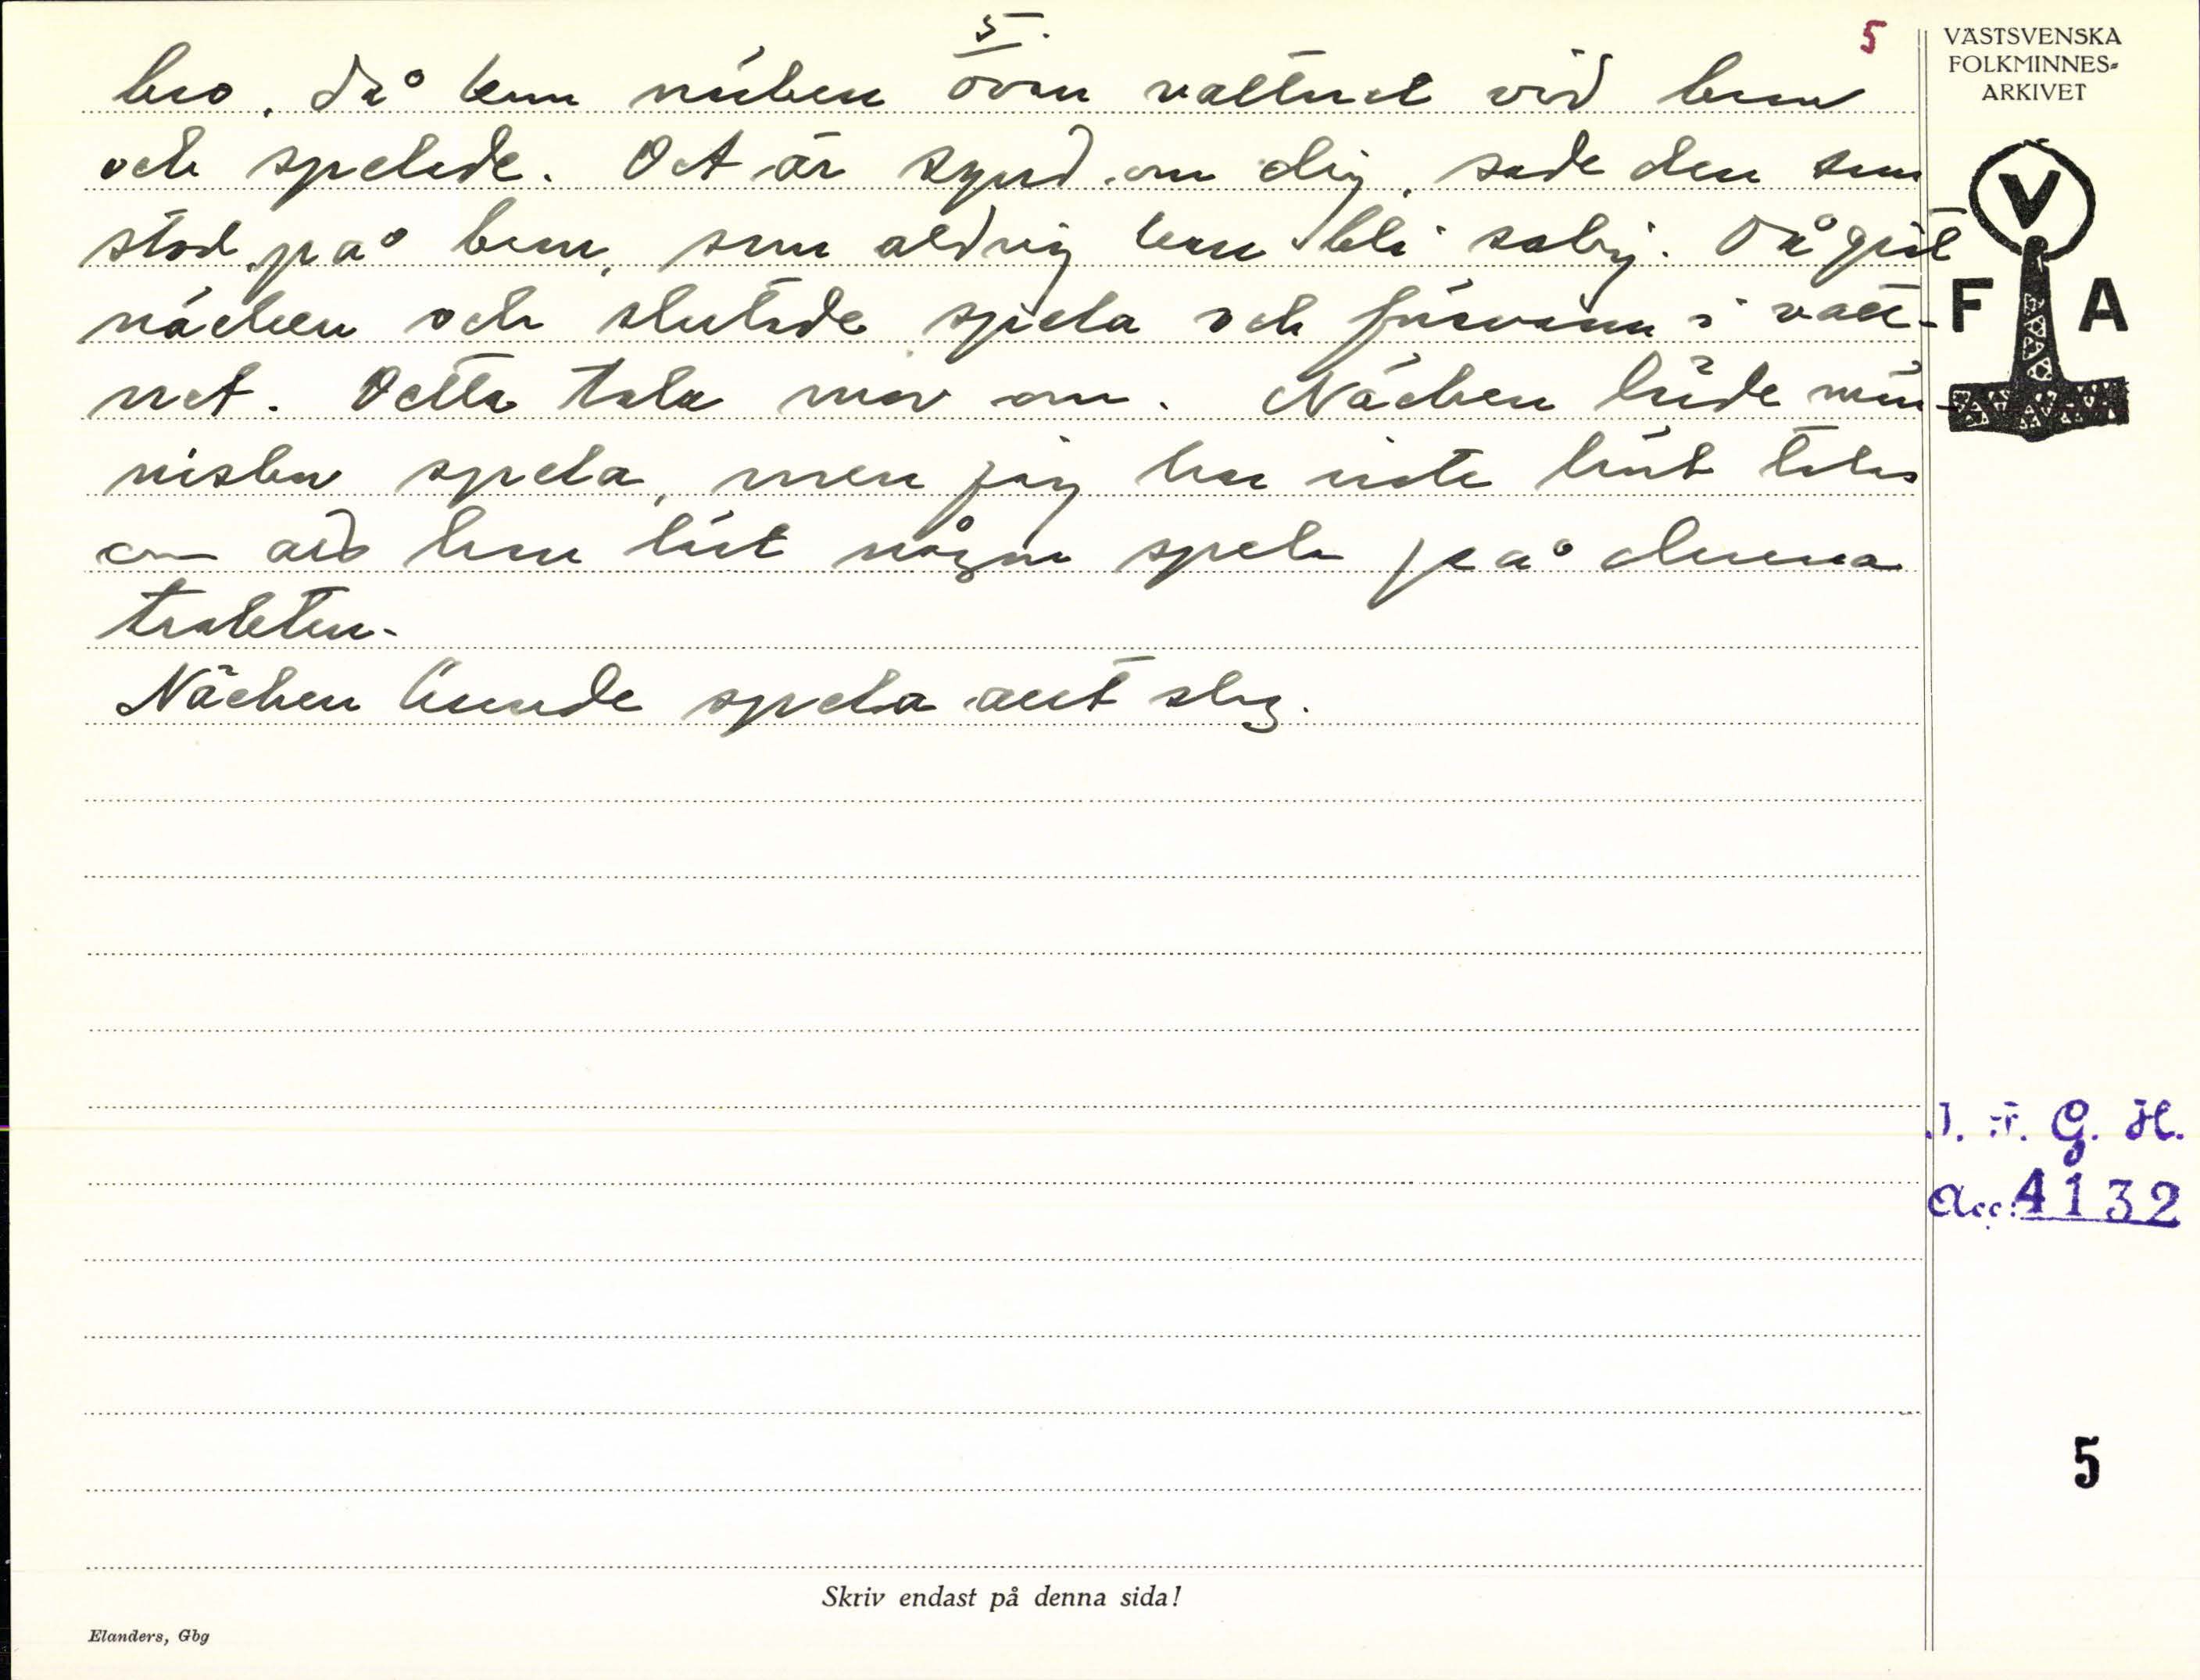 5.
5
bro. Då kom näcken ovan vattnet vid bron
och spelade. Det är synd om dig, sade den som
stod på bron, som aldrig kan bli salig. Då grät
näcken och slutade spela och försvann i vatt-
net. Detta talar mor om. Näcken lärde män-
niskor spela, men jag har inte hört talas
om att han lärt någon spela på denna
trakten.
Näcken kunde spela allt slag.
VÄSTSVENSKA
FOLKMINNES-
ARKIVET
V
F A
I. F. G. H.
Acc. 4132
5
Skriv endast på denna sida!
Elanders, Gbg